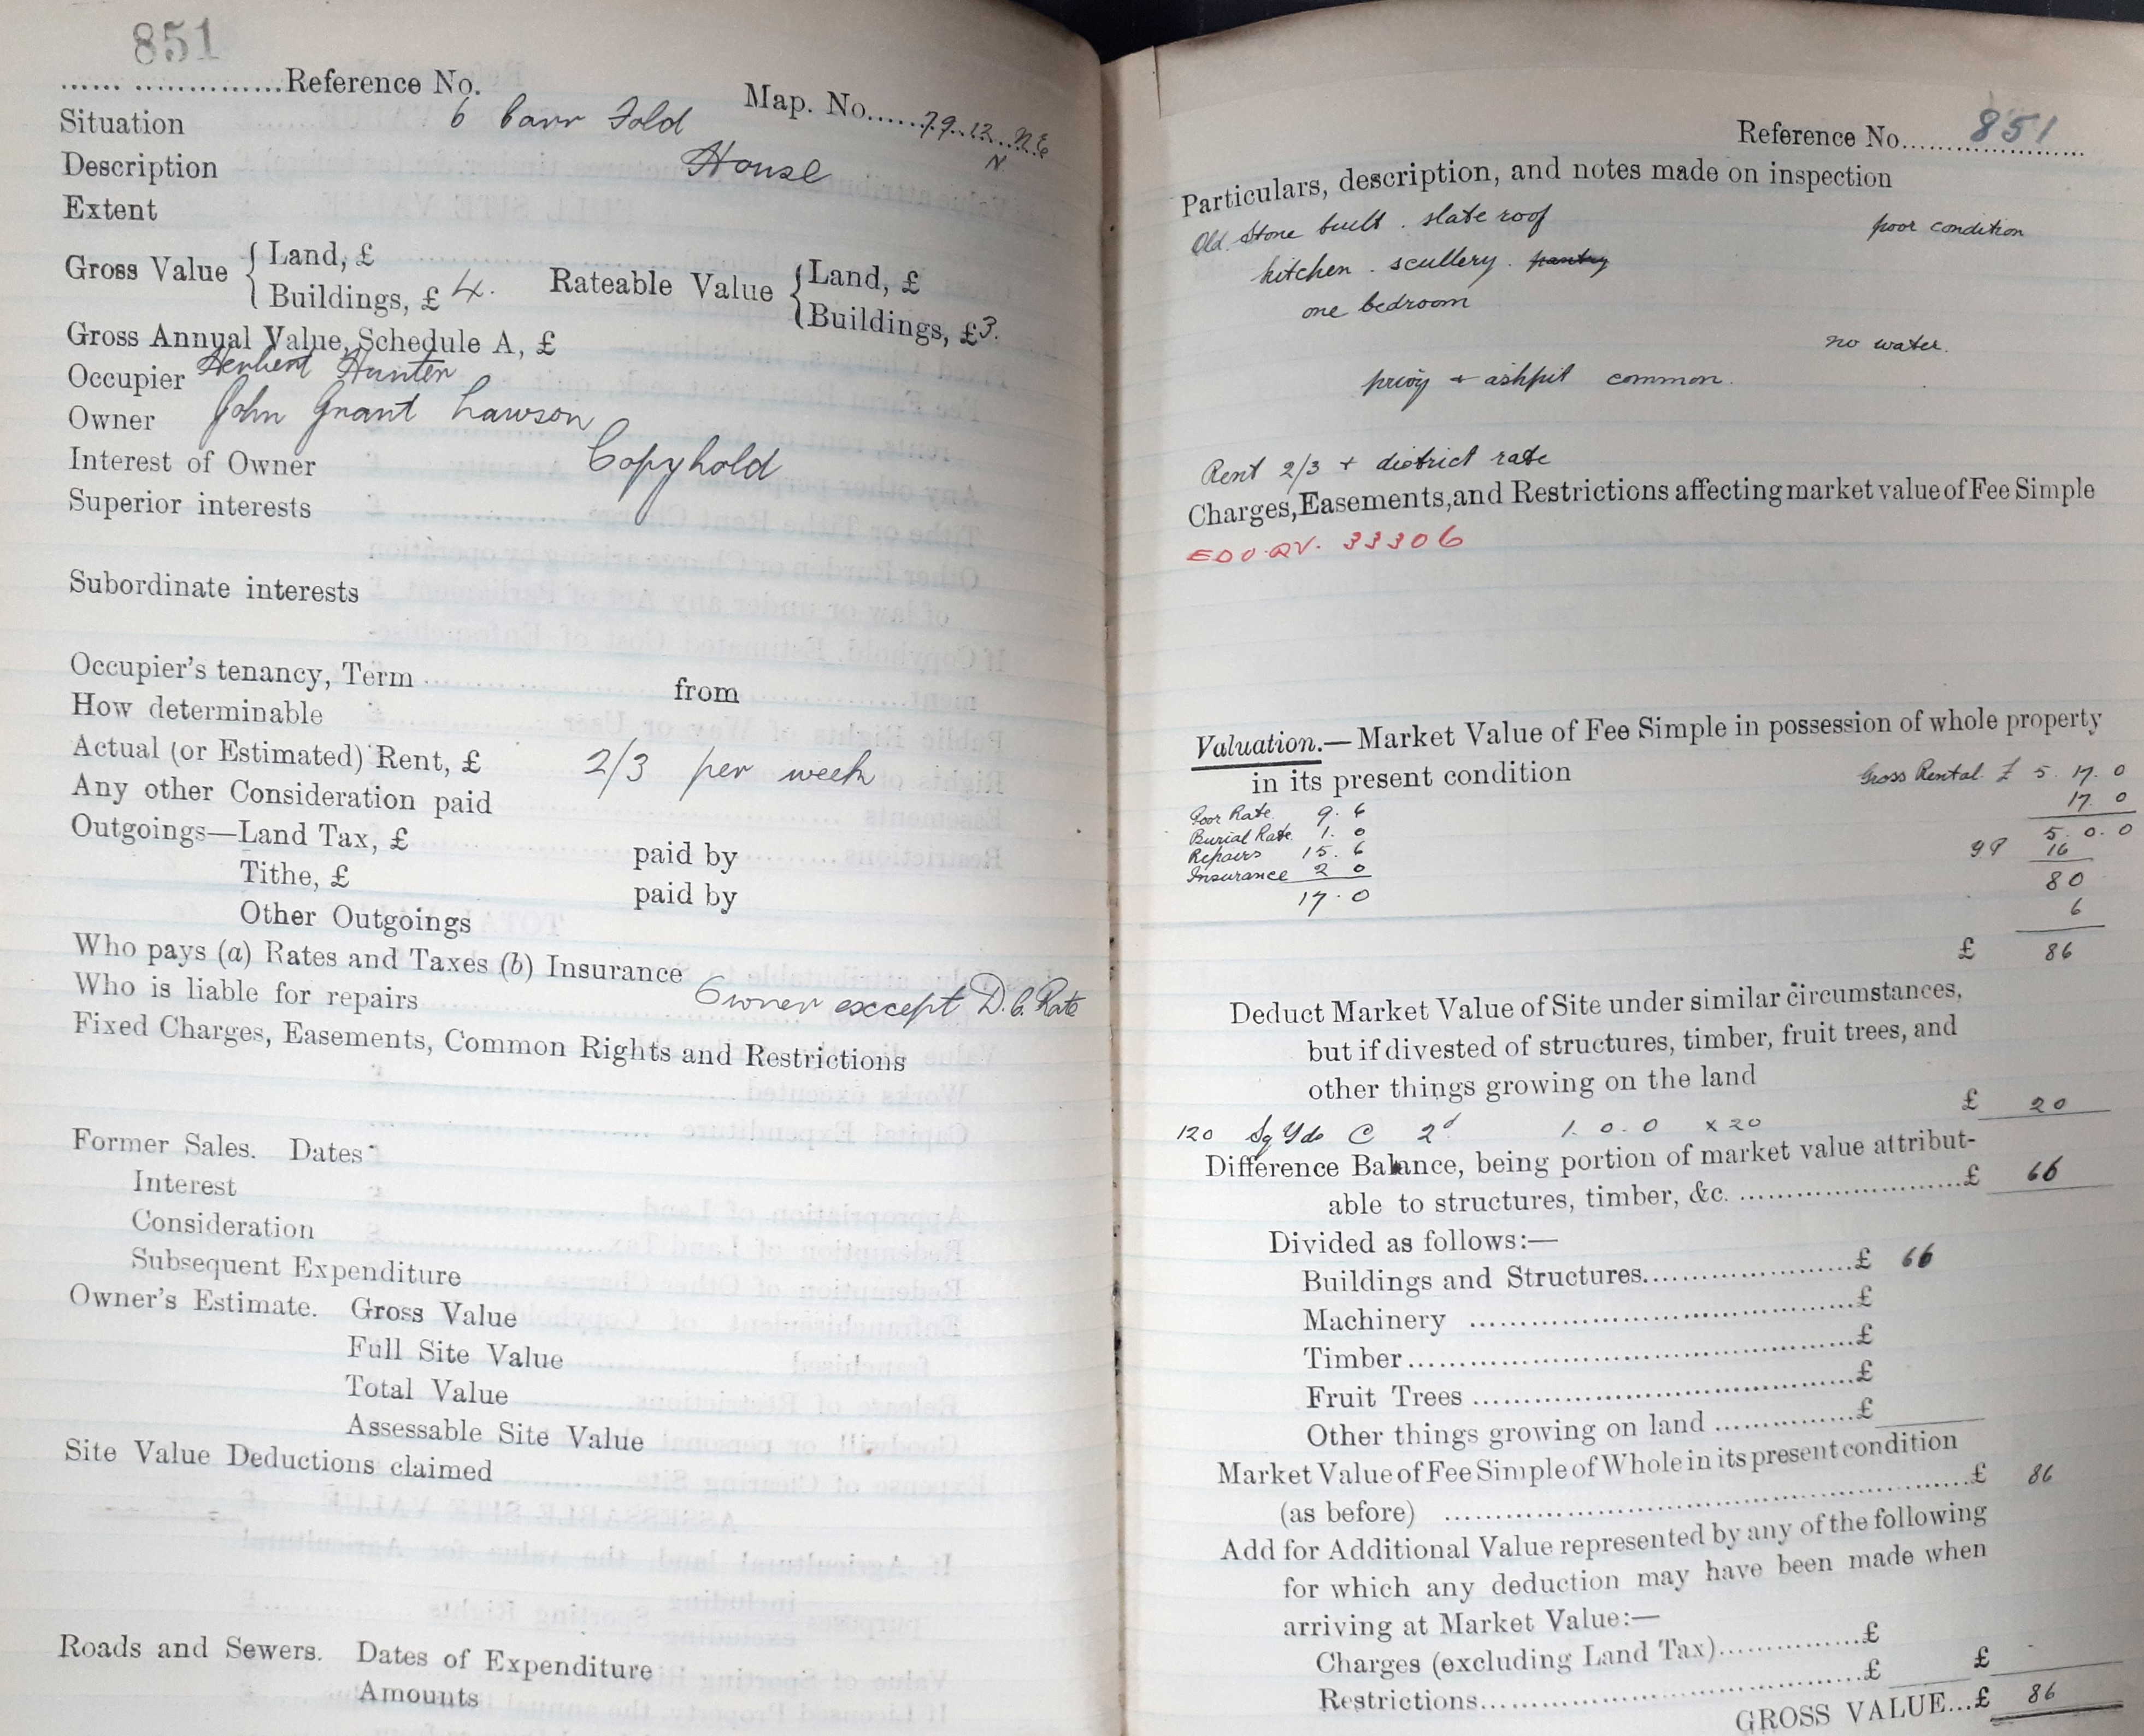 851
...... ..............Reference No. Map. No......79.12.N.E
N
Situation 6 Carr Fold
Description House
Extent
Gross Value { Land, £ Rateable Value { Land, £
Buildings, £ 4. Buildings, £3.
Gross Annual Value, Schedule A, £
Occupier Herbert Hunter
Owner John Grant Lawson
Interest of Owner Copyhold
Superior interests
Subordinate interests
Occupier's tenancy, Term .......................... from
How determinable
Actual (or Estimated) Rent, £ 2/3 per week
Any other Consideration paid
Outgoings—Land Tax, £ paid by
Tithe, £ paid by
Other Outgoings
Who pays (a) Rates and Taxes (b) Insurance
Who is liable for repairs Owner except D.C. Rate
Fixed Charges, Easements, Common Rights and Restrictions
Former Sales. Dates
Interest
Consideration
Subsequent Expenditure
Owner's Estimate. Gross Value
Full Site Value
Total Value
Assessable Site Value
Site Value Deductions claimed
Roads and Sewers. Dates of Expenditure
Amounts
Reference No. 851
Particulars, description, and notes made on inspection
Old Stone built . slate roof poor condition
kitchen . scullery . pantry
one bedroom
no water.
privy + ashpit common.
Rent 2/3 + district rate
Charges, Easements, and Restrictions affecting market value of Fee Simple
33306
Valuation.—Market Value of Fee Simple in possession of whole property
in its present condition Gross Rental £ 5. 17. 0
Poor Rate. 9. 6 17. 0
Burial Rate. 1. 0 5. 0. 0
Repairs 15. 6 16
Insurance 2 0 80
17. 0 6
£ 86
Deduct Market Value of Site under similar circumstances,
but if divested of structures, timber, fruit trees, and
other things growing on the land £ 20
120 Sq Yds @ 2d 1. 0. 0 x 20
Difference Balance, being portion of market value attribut-
able to structures, timber, &c. ..........................£ 66
Divided as follows:—
Buildings and Structures......................£ 66
Machinery ......................£
Timber......................£
Fruit Trees ......................£
Other things growing on land ..............£
Market Value of Fee Simple of Whole in its present condition
(as before) ......................£ 86
Add for Additional Value represented by any of the following
for which any deduction may have been made when
arriving at Market Value:—
Charges (excluding Land Tax)..............£
Restrictions......................£ £
GROSS VALUE...£ 86